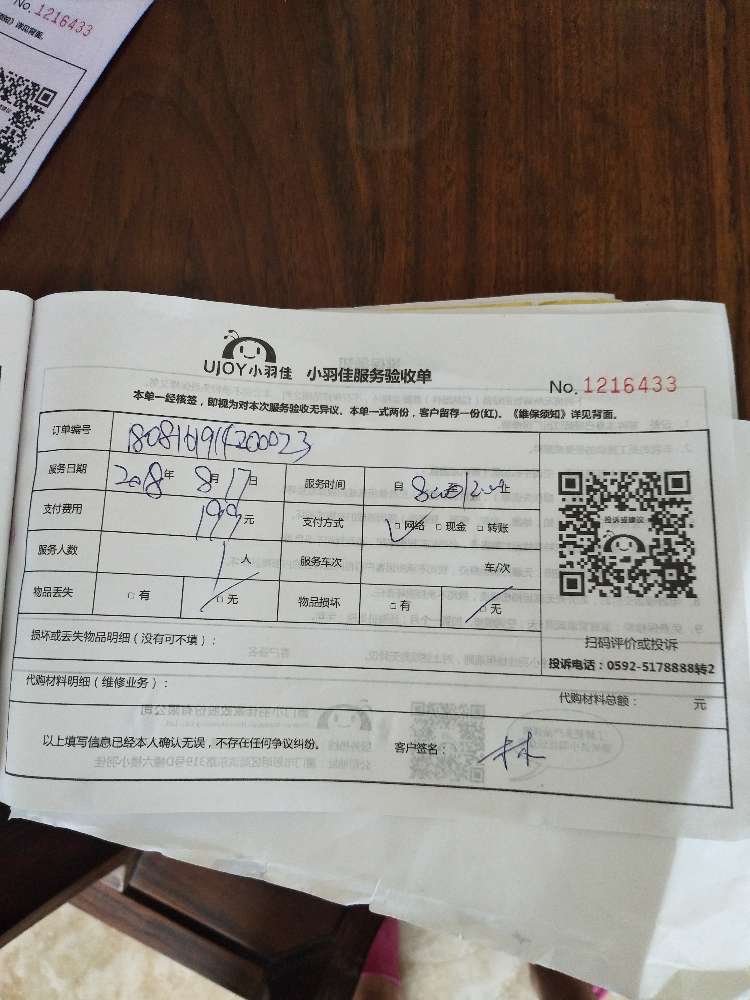 No. 1216433
UJOY小羽佳 小羽佳服务验收单
No. 1216433
本单一经核签，即视为对本次服务验收无异议。本单一式两份，客户留存一份(红)。《维保须知》详见背面。
订单编号
服务日期 2018年 8月17日 服务时间 自 8:00 12:00止
支付费用 199元 支付方式 □网络 □现金 □转账
服务人数 1人 服务车次 车/次
物品丢失 □有 □无 物品损坏 □有 □无
投诉或建议
扫码评价或投诉
投诉电话：0592-5178888转2
损坏或丢失物品明细（没有可不填）：
代购材料明细（维修业务）：
代购材料总额： 元
以上填写信息已经本人确认无误，不存在任何争议纠纷。 客户签名： 林